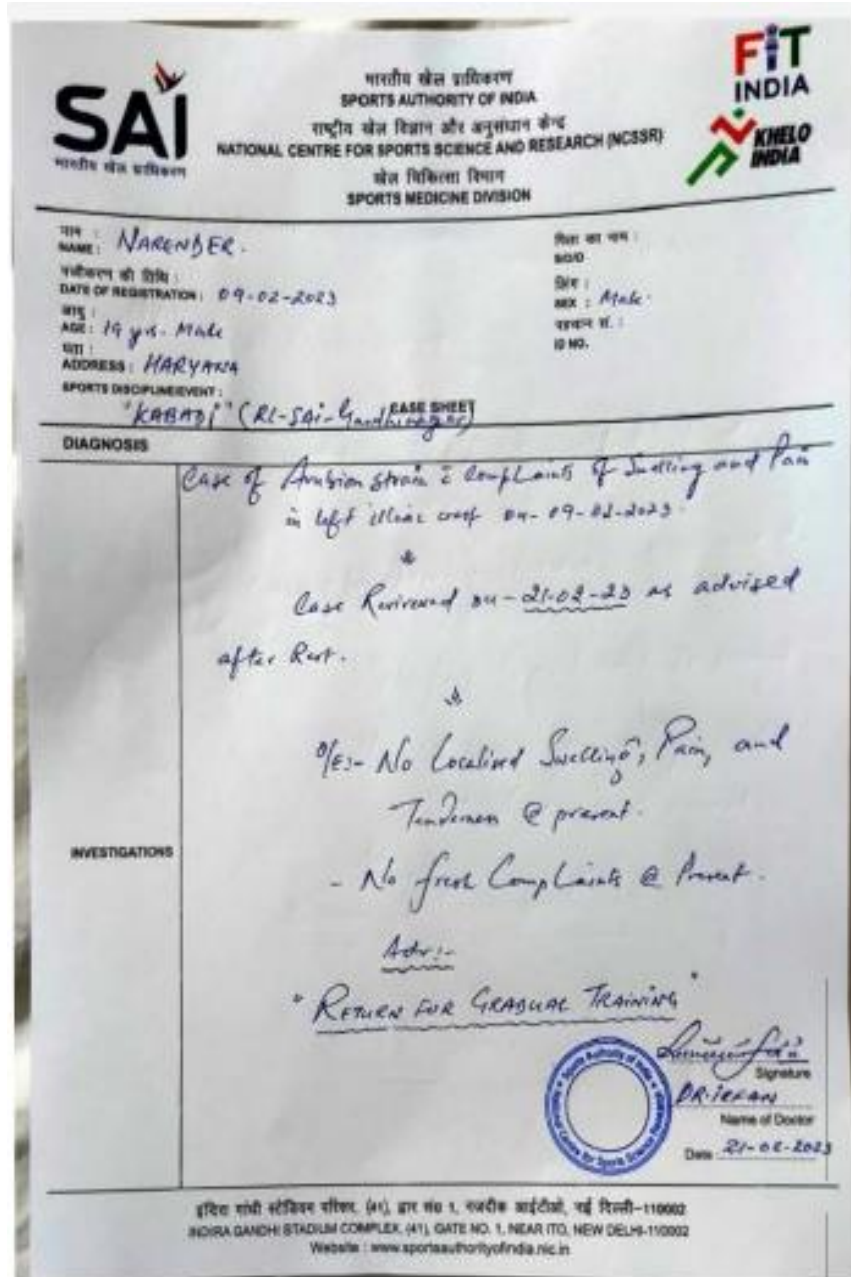 SAI
भारतीय खेल प्राधिकरण
भारतीय खेल प्राधिकरण
SPORTS AUTHORITY OF INDIA
राष्ट्रीय खेल विज्ञान और अनुसंधान केन्द्र
NATIONAL CENTRE FOR SPORTS SCIENCE AND RESEARCH (NCSSR)
खेल चिकित्सा विभाग
SPORTS MEDICINE DIVISION
FIT
INDIA
KHELO
INDIA
नाम :
NAME : NARENDER.
पंजीकरण की तिथि :
DATE OF REGISTRATION : 09-02-2023
आयु :
AGE : 19 yrs. Male
पता :
ADDRESS : HARYANA
SPORTS DISCIPLINE/EVENT :
"KABADI" (RC-SAI-Gandhinagar)
पिता का नाम :
S/O/D
लिंग :
SEX : Male.
पहचान सं. :
ID NO.
CASE SHEET
DIAGNOSIS
Case of strain c Complaints of Swelling and Pain
in left iliac crest on - 09-02-2023.
Case Reviewed on - 21-02-23 as advised
after Rest.
O/E:- No Localised Swelling, Pain, and
Tenderness @ present.
INVESTIGATIONS
- No fresh Complaints @ Present.
Adv:-
"RETURN FOR GRADUAL TRAINING"
Signature
DR. IRFAN
Name of Doctor
Date 21-02-2023
Sports Authority of India
इंदिरा गांधी स्टेडियम परिसर, (41), द्वार सं0 1, नजदीक आईटीओ, नई दिल्ली-110002
INDIRA GANDHI STADIUM COMPLEX, (41), GATE NO. 1, NEAR ITO, NEW DELHI-110002
Website : www.sportsauthorityofindia.nic.in